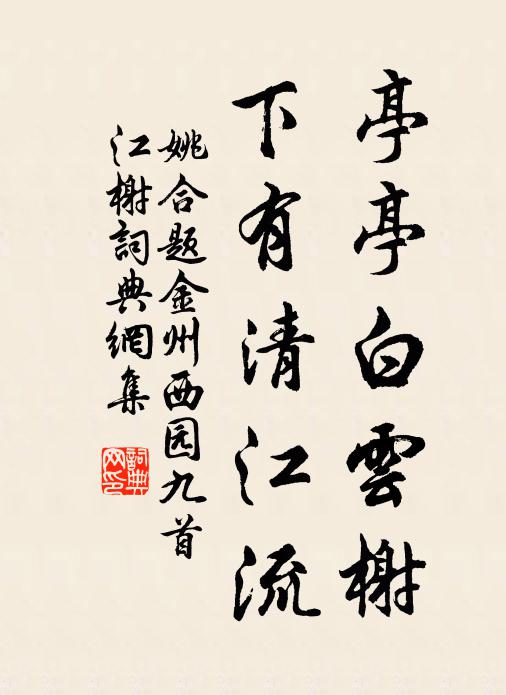 亭亭白雲榭
下有清江流
姚合题金州西园九首
江榭詞典網集
詞典
网印